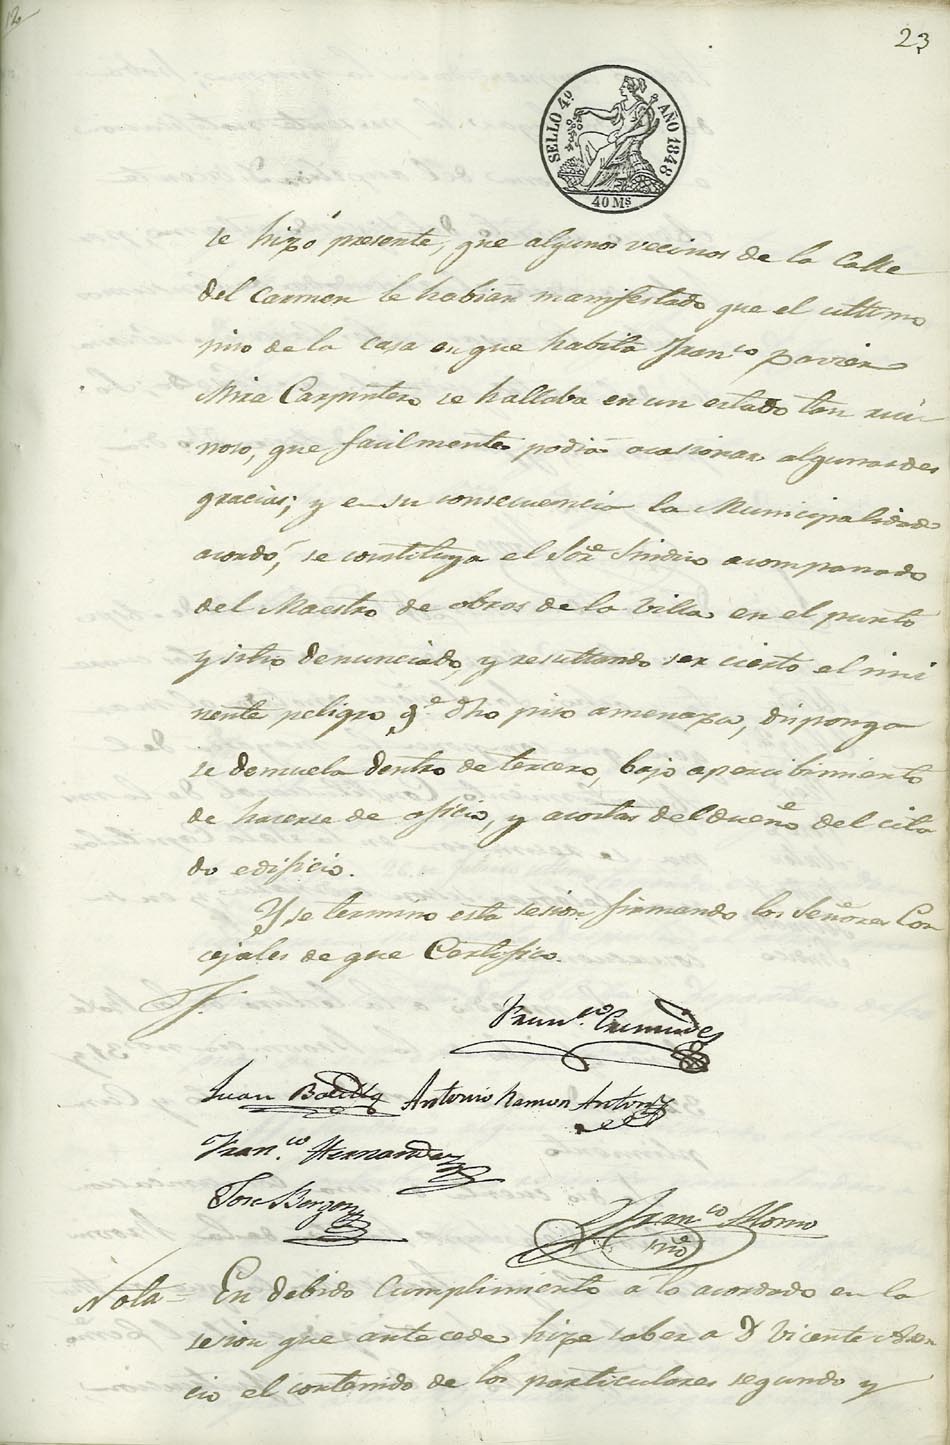 12
23
SELLO 4º AÑO 1848
40 Ms
se hizó presente, que algunos vecinos de la Calle
del Carmen le habian manifestado que el ultimo
piso de la casa en que habita Franco Xavier
Mira Carpintero se hallaba en un estado tan rui-
noso, que facilmente podia ocasionar algunas des
gracias; y en su consecuencia la Municipalidad
acordó, se constituya el Sor Sindico acompanado
del Maestro de obras de la Villa en el punto
y sitio denunciado, y resultando ser cierto el imi
nente peligro qe dho piso amenaza, disponga
se demuela dentro de tercero, bajo apercibimiento
de hacerse de oficio, y acostas del dueño del cita
do edificio.
Y se termino esta sesion firmando los Señores Con
cejales de que Certifico.
Franco
Juan Antonio Ramon Anton
Franco Hernandez
Jose
Franco Alonso
Srio
Nota = En debido Cumplimiento a lo acordado en la
sesion que antecede hize saber a D Vicente
cio el contenido de los particulares segundo y